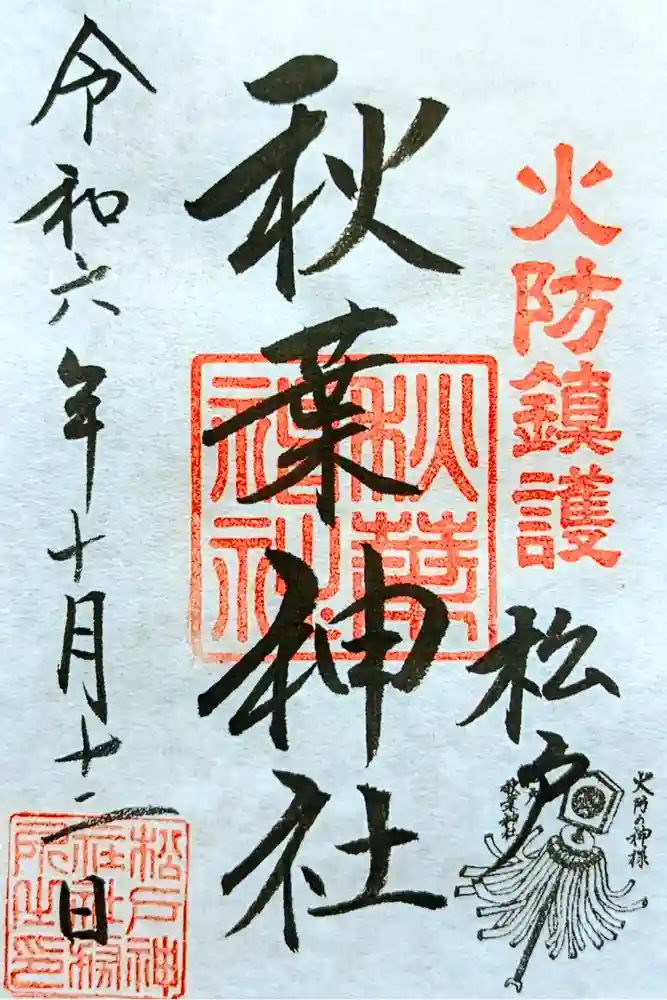 火防鎮護
松戸
火防の神様
秋葉神社
秋葉神社
秋葉神社
令和六年十月十二日
松戸神
社社務
所之印